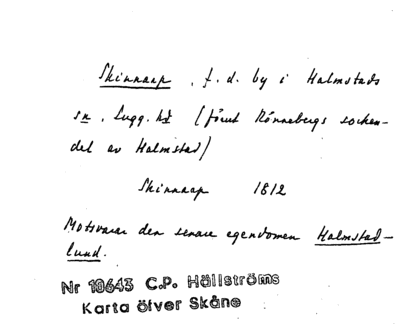 Skinnaap, f.d. by i Halmstads
sn, Lugg. hd (förut Rönnebergs socken-
del av Halmstad)
Skinnaap 1812
Motsvarar den senare egendomen Halmstad-
lund.
Nr 10643 C.P. Hällströms
Karta öfver Skåne